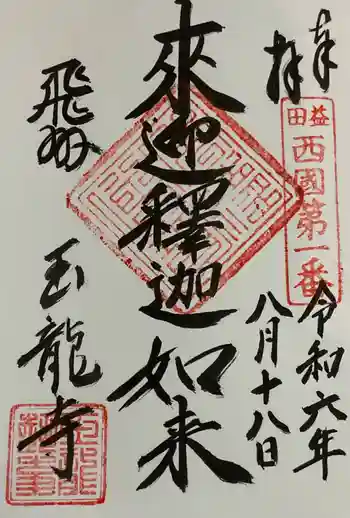 奉拝
益田
西國第一番
令和六年
八月十八日
來迎釋迦如来
飛羽
玉龍寺